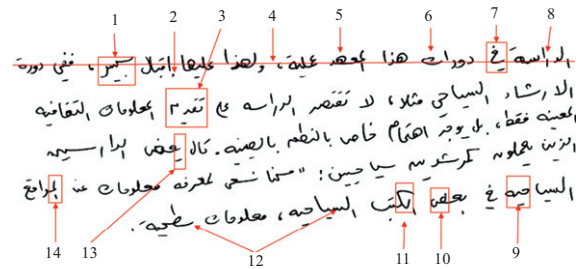 1 2 3 4 5 6 7 8
الدراسة في دورات هذا المعهد عملية، ولهذا عليها إقبال كبير، ففي دورة
الارشاد السياحي مثلا، لا تقتصر الدراسه على تقديم المعلومات الثقافيه
المعينه فقط، بل يوجد اهتمام خاص بالنطق بالصينيه. قال بعض الدارسين
الذين يعملون كمرشدين سياحيين: "مسعى لمعرفه معلومات عن المواقع
السياحيه في بعض الكتب السياحيه، معلومات سطحية.
14 13 12 11 10 9